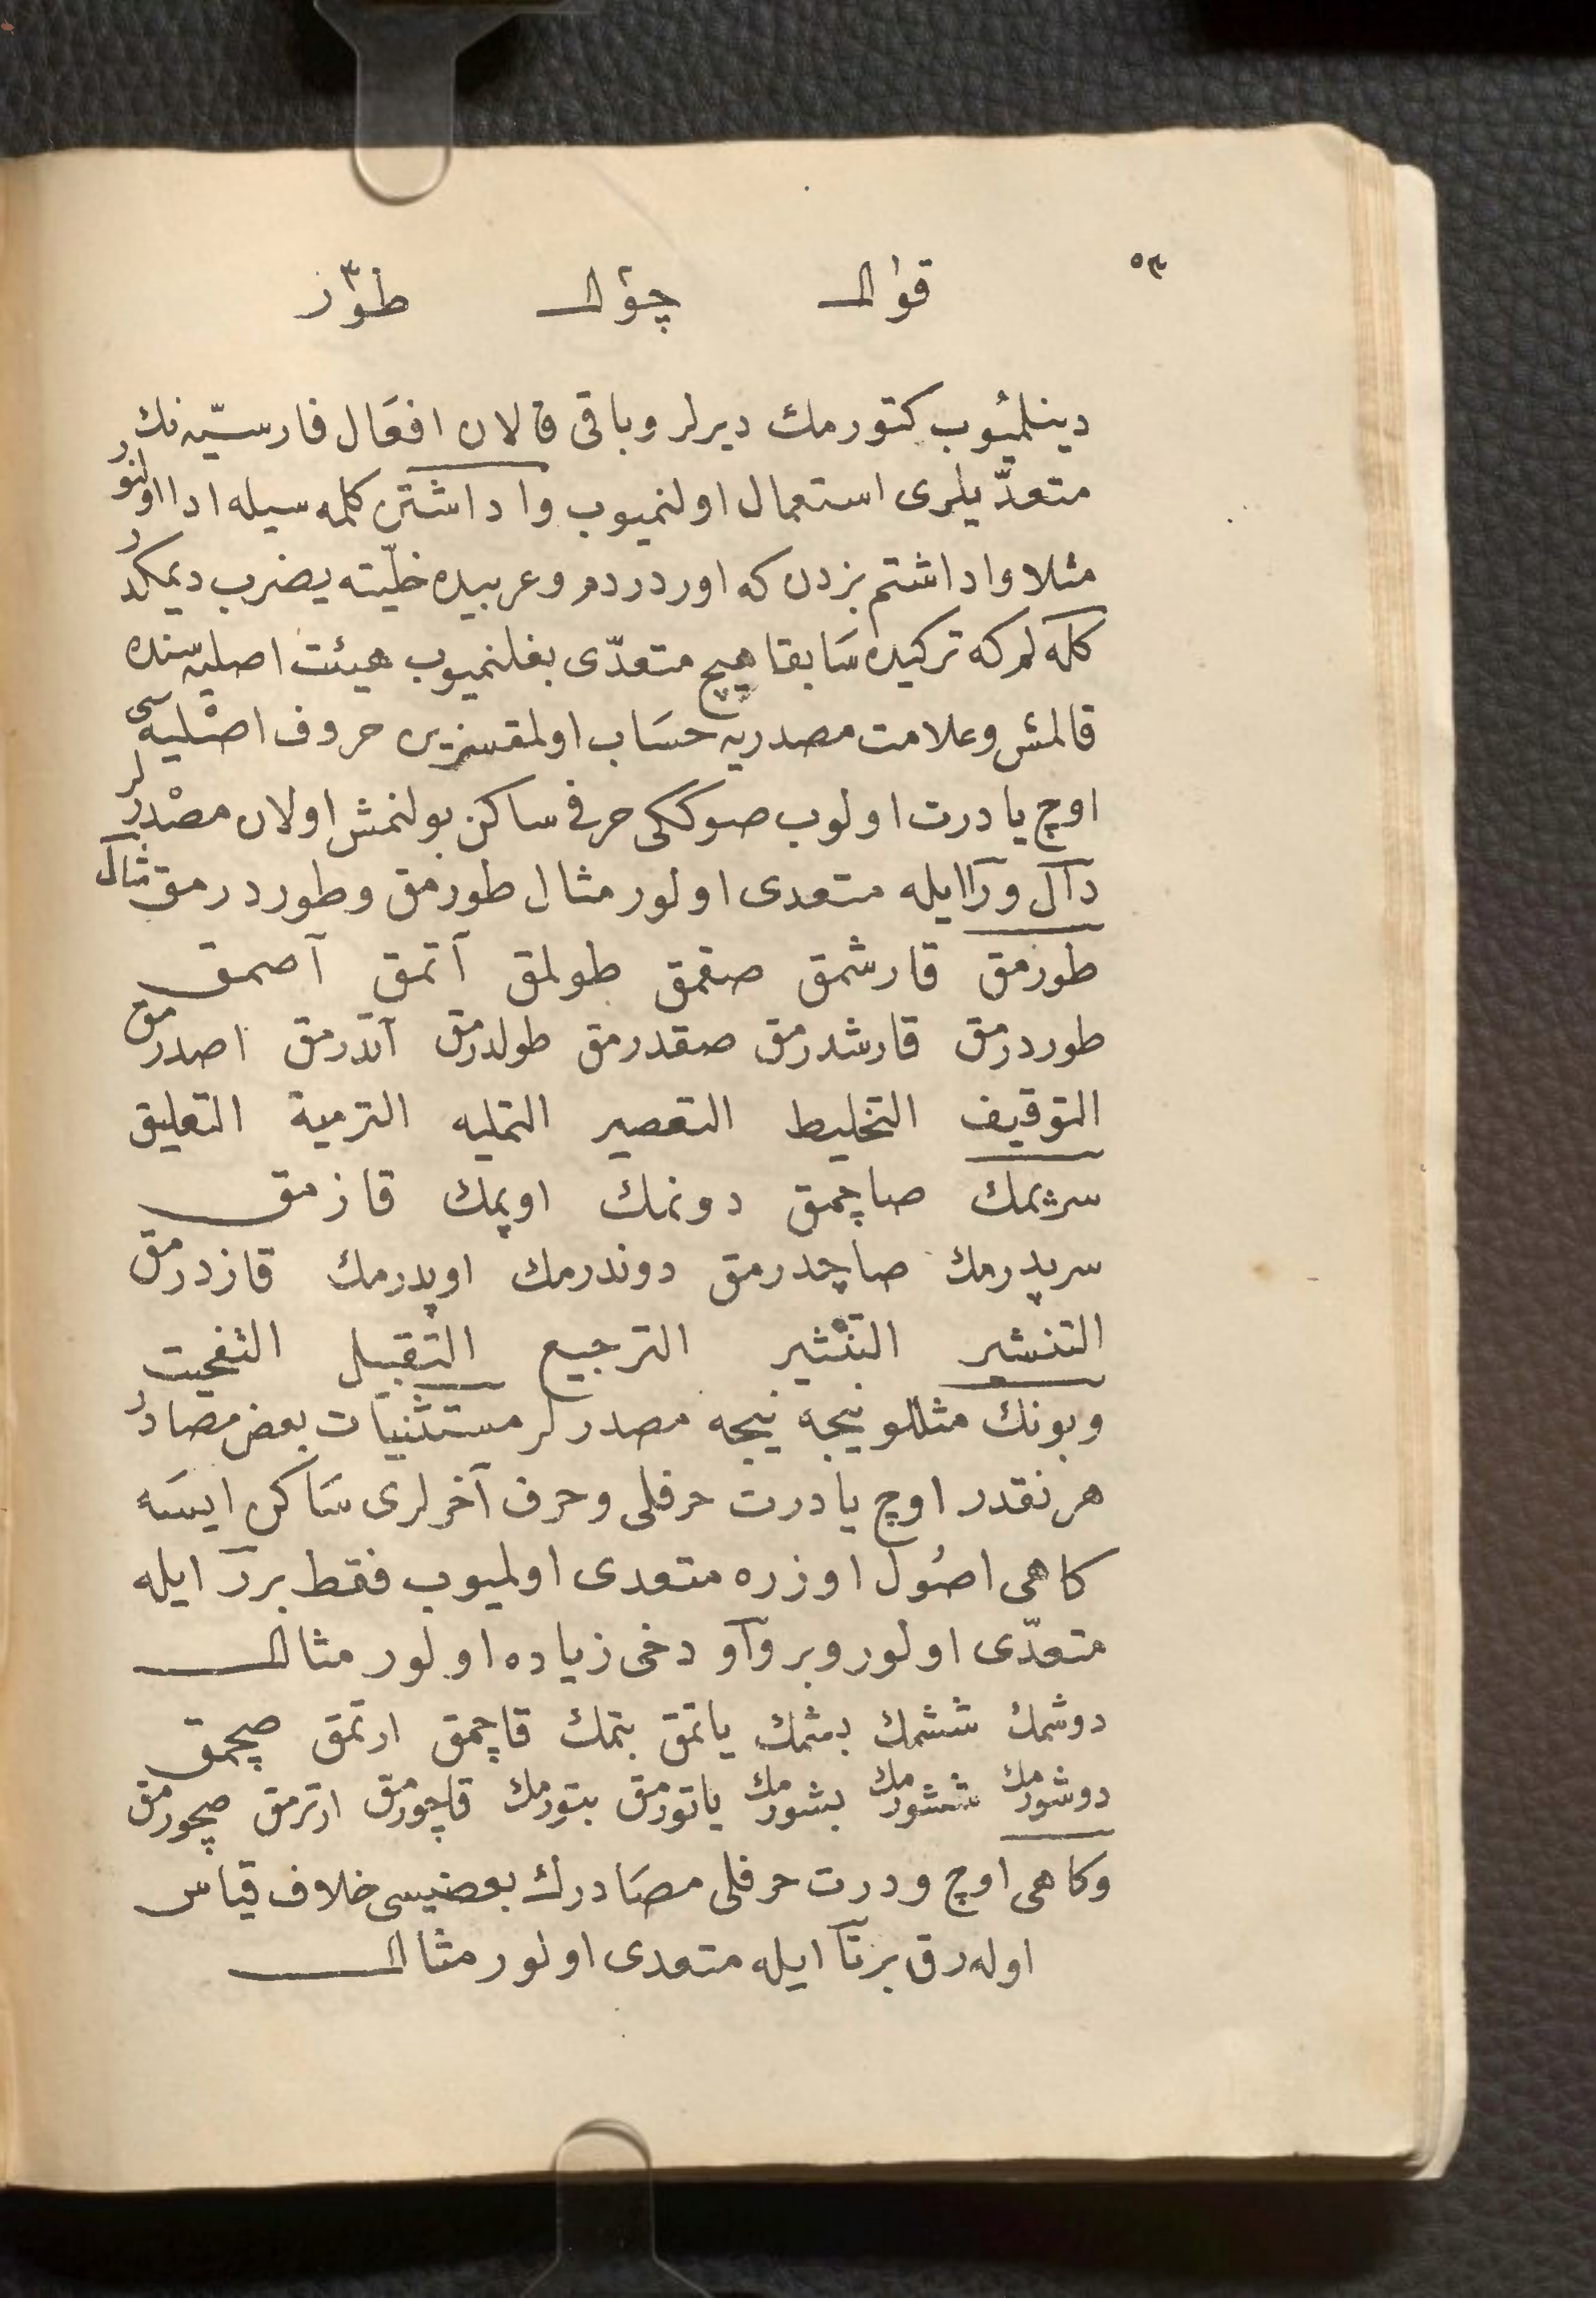 ٥٣
قوال چوال طوز
دينلميوب كتورمك ديرلر وباقى قالان افعال فارسيّه نك
متعدّيلرى استعمال اولنميوب وا داشتن كلمه سيله ادا اولنور
مثلا وا داشتم بزدن كه اوردردم وعربيده خلّيته يضرب ديمكدر
كلمه لر كه تركيده سابقا هيچ متعدّى بغلنميوب هيئت اصليه سنده
قالمش وعلامت مصدريه حساب اولمقسزين حروف اصليه سى
اوچ يا درت اولوب صوككى حرفى ساكن بولنمش اولان مصدرلر
دآل ورا ايله متعدى اولور مثال طورمق وطوردرمق مثال
طورمق قارشمق صقمق طولمق آتمق آصمق
طوردرمق قارشدرمق صقدرمق طولدرمق آتدرمق اصدرمق
التوقيف التخليط التعصير التمليه الترمية التعليق
سرپمك صاچمق دونمك اوپمك قازمق
سرپدرمك صاچدرمق دوندرمك اوپدرمك قازدرمق
التنشير التنثير الترجيع التقبيل التفحيت
وبونك مثللو نيجه نيجه مصدرلر مستثنيات بعض مصادر
هر نقدر اوچ يا درت حرفلى وحرف آخرلرى ساكن ايسه
كاهى اصول اوزره متعدى اولميوب فقط بر ر ايله
متعدّى اولور وبر وآو دخى زياده اولور مثال
دوشمك ششمك بشمك ياتمق بتمك قاچمق ارتمق صچمق
دوشورمك ششورمك بشورمك ياتورمق بتورمك قاچورمق ارترمق صچورمق
وكاهى اوچ ودرت حرفلى مصادرك بعضيسى خلاف قياس
اوله رق بر تآ ايله متعدى اولور مثال